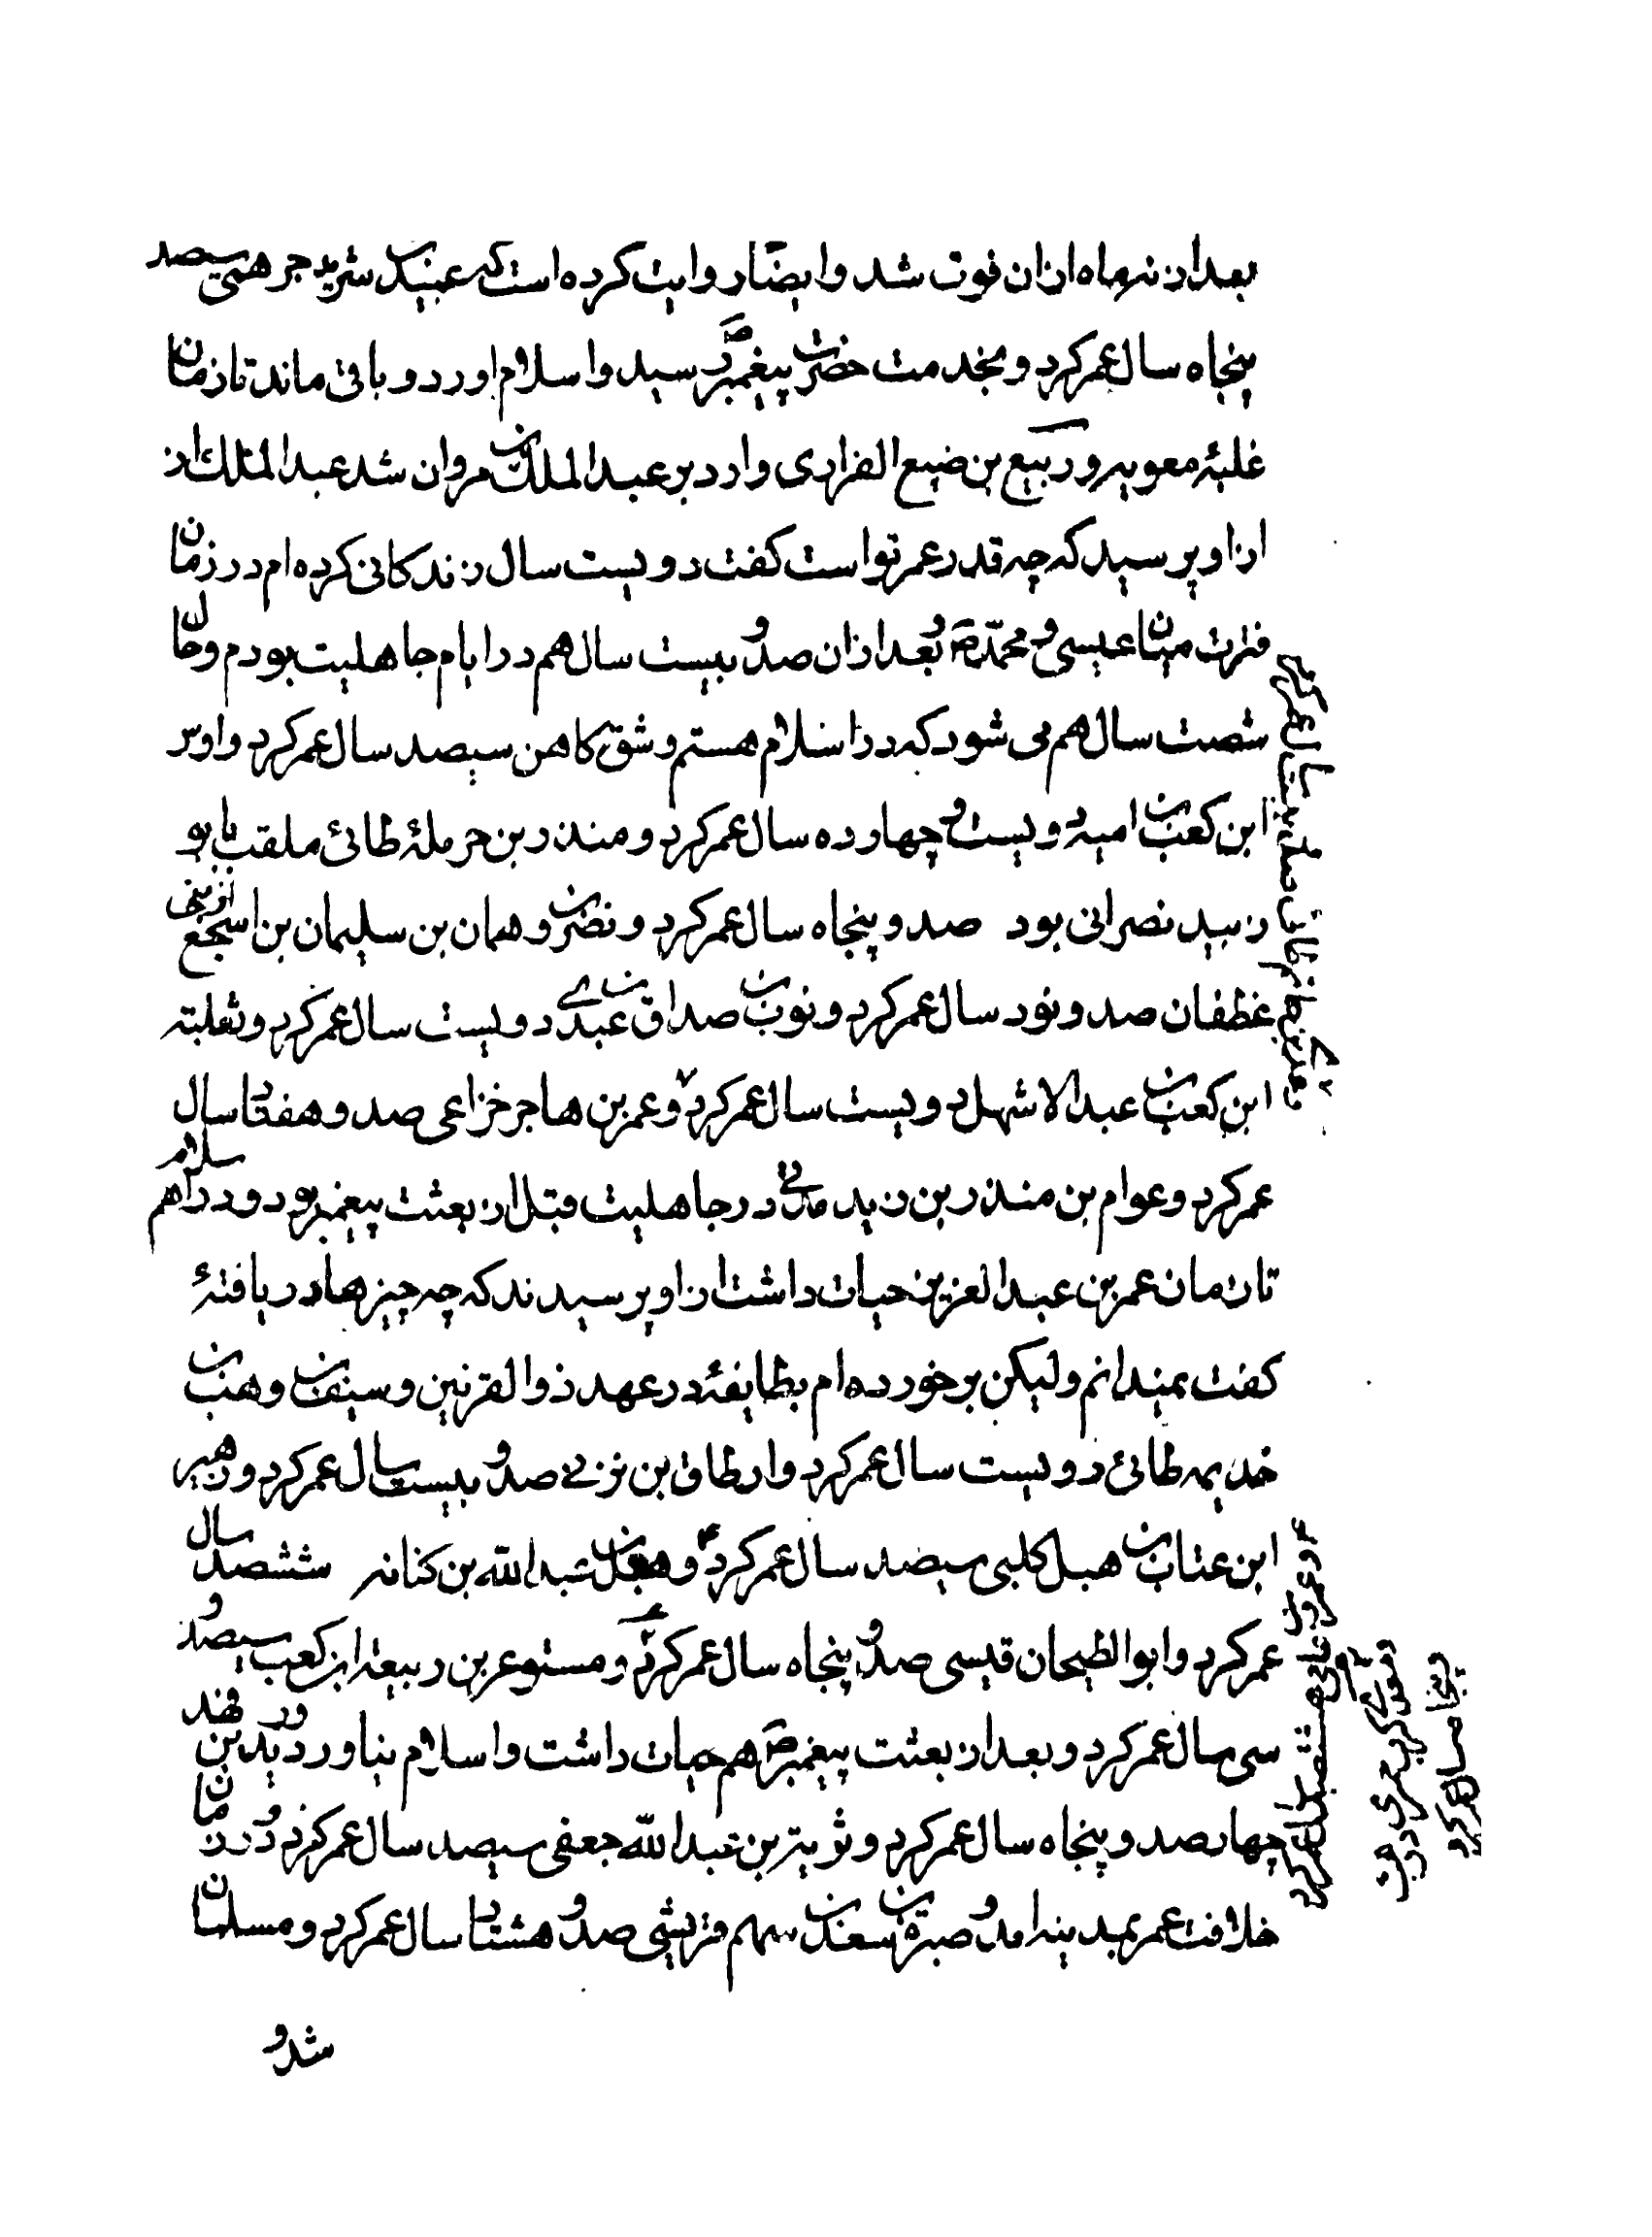 بعد از نه ماه ازان فوت شد و ایضا روایت کرده است که عبید بن شرید جرهمی سیصد
پنجاه سال عمر کرد و بخدمت حضرت پیغمبر ص رسید و اسلام اورد و باقی ماند تا زمان
غلبهٔ معویه و ربیع بن ضبع الفزاری وارد بر عبد الملک بن مروان شد عبد الملک از
از او پرسید که چه قدر عمر تو است کفت دویست سال زندکانی کرده ام در زمان
فترت میان عیسی و محمد ص و بعد ازان صد و بیست سال هم در ایام جاهلیت بودم و حال
شصت سال هم می شود که در اسلام هستم و شق کاهن سیصد سال عمر کرد و اوس
ابن کعب بن امیه دویست و چهارده سال عمر کرد و منذر بن حرملهٔ طائی ملقب بابو
زبید نصرانی بود صد و پنجاه سال عمر کرد و نصر بن دهمان بن سلیمان بن اشجع از بنی
غطفان صد و نود سال عمر کرد و ثوب بن صداق عبدی دویست سال عمر کرد و ثعلبته
ابن کعب بن عبد الاشهل دویست سال عمر کرد و عمر بن هاجر خزاعی صد و هفتاد سال
عمر کرد و عوام بن منذر بن زید در جاهلیت قبل از بعثت پیغمبر بود و در اسلام هم
تا زمان عمر بن عبد العزیز حیات داشت از او پرسیدند که چه چیزها دریافتهٔ
کفت نمیدانم و لیکن برخورده ام بطایفهٔ در عهد ذو القرنین و سیف بن وهب بن
خدیمه طائی دویست سال عمر کرد و ارطاة بن صد و بیست سال عمر کرد و زهیر
ابن عتاب بن هبل کلبی سیصد سال عمر کرد و هبل بن عبد الله بن کنانه ششصد سال
عمر کرد و ابو الطمحان قیسی صد و پنجاه سال عمر کرد و مستوعر بن ربیعة ابن کعب سیصد و
سی سال عمر کرد و بعد از بعثت پیغمبر ص هم حیات داشت و اسلام نیاورد و درید بن نهد
چهارصد و پنجاه سال عمر کرد و ثوبته بن عبد الله جعفی سیصد سال عمر کرد و در زمان
خلافت عمر بمدینه امد و صبرة بن سعد بن سهم قریشی صد و هشتاد سال عمر کرد و مسلمان
شد و
و پنجاه سال عمر کرد